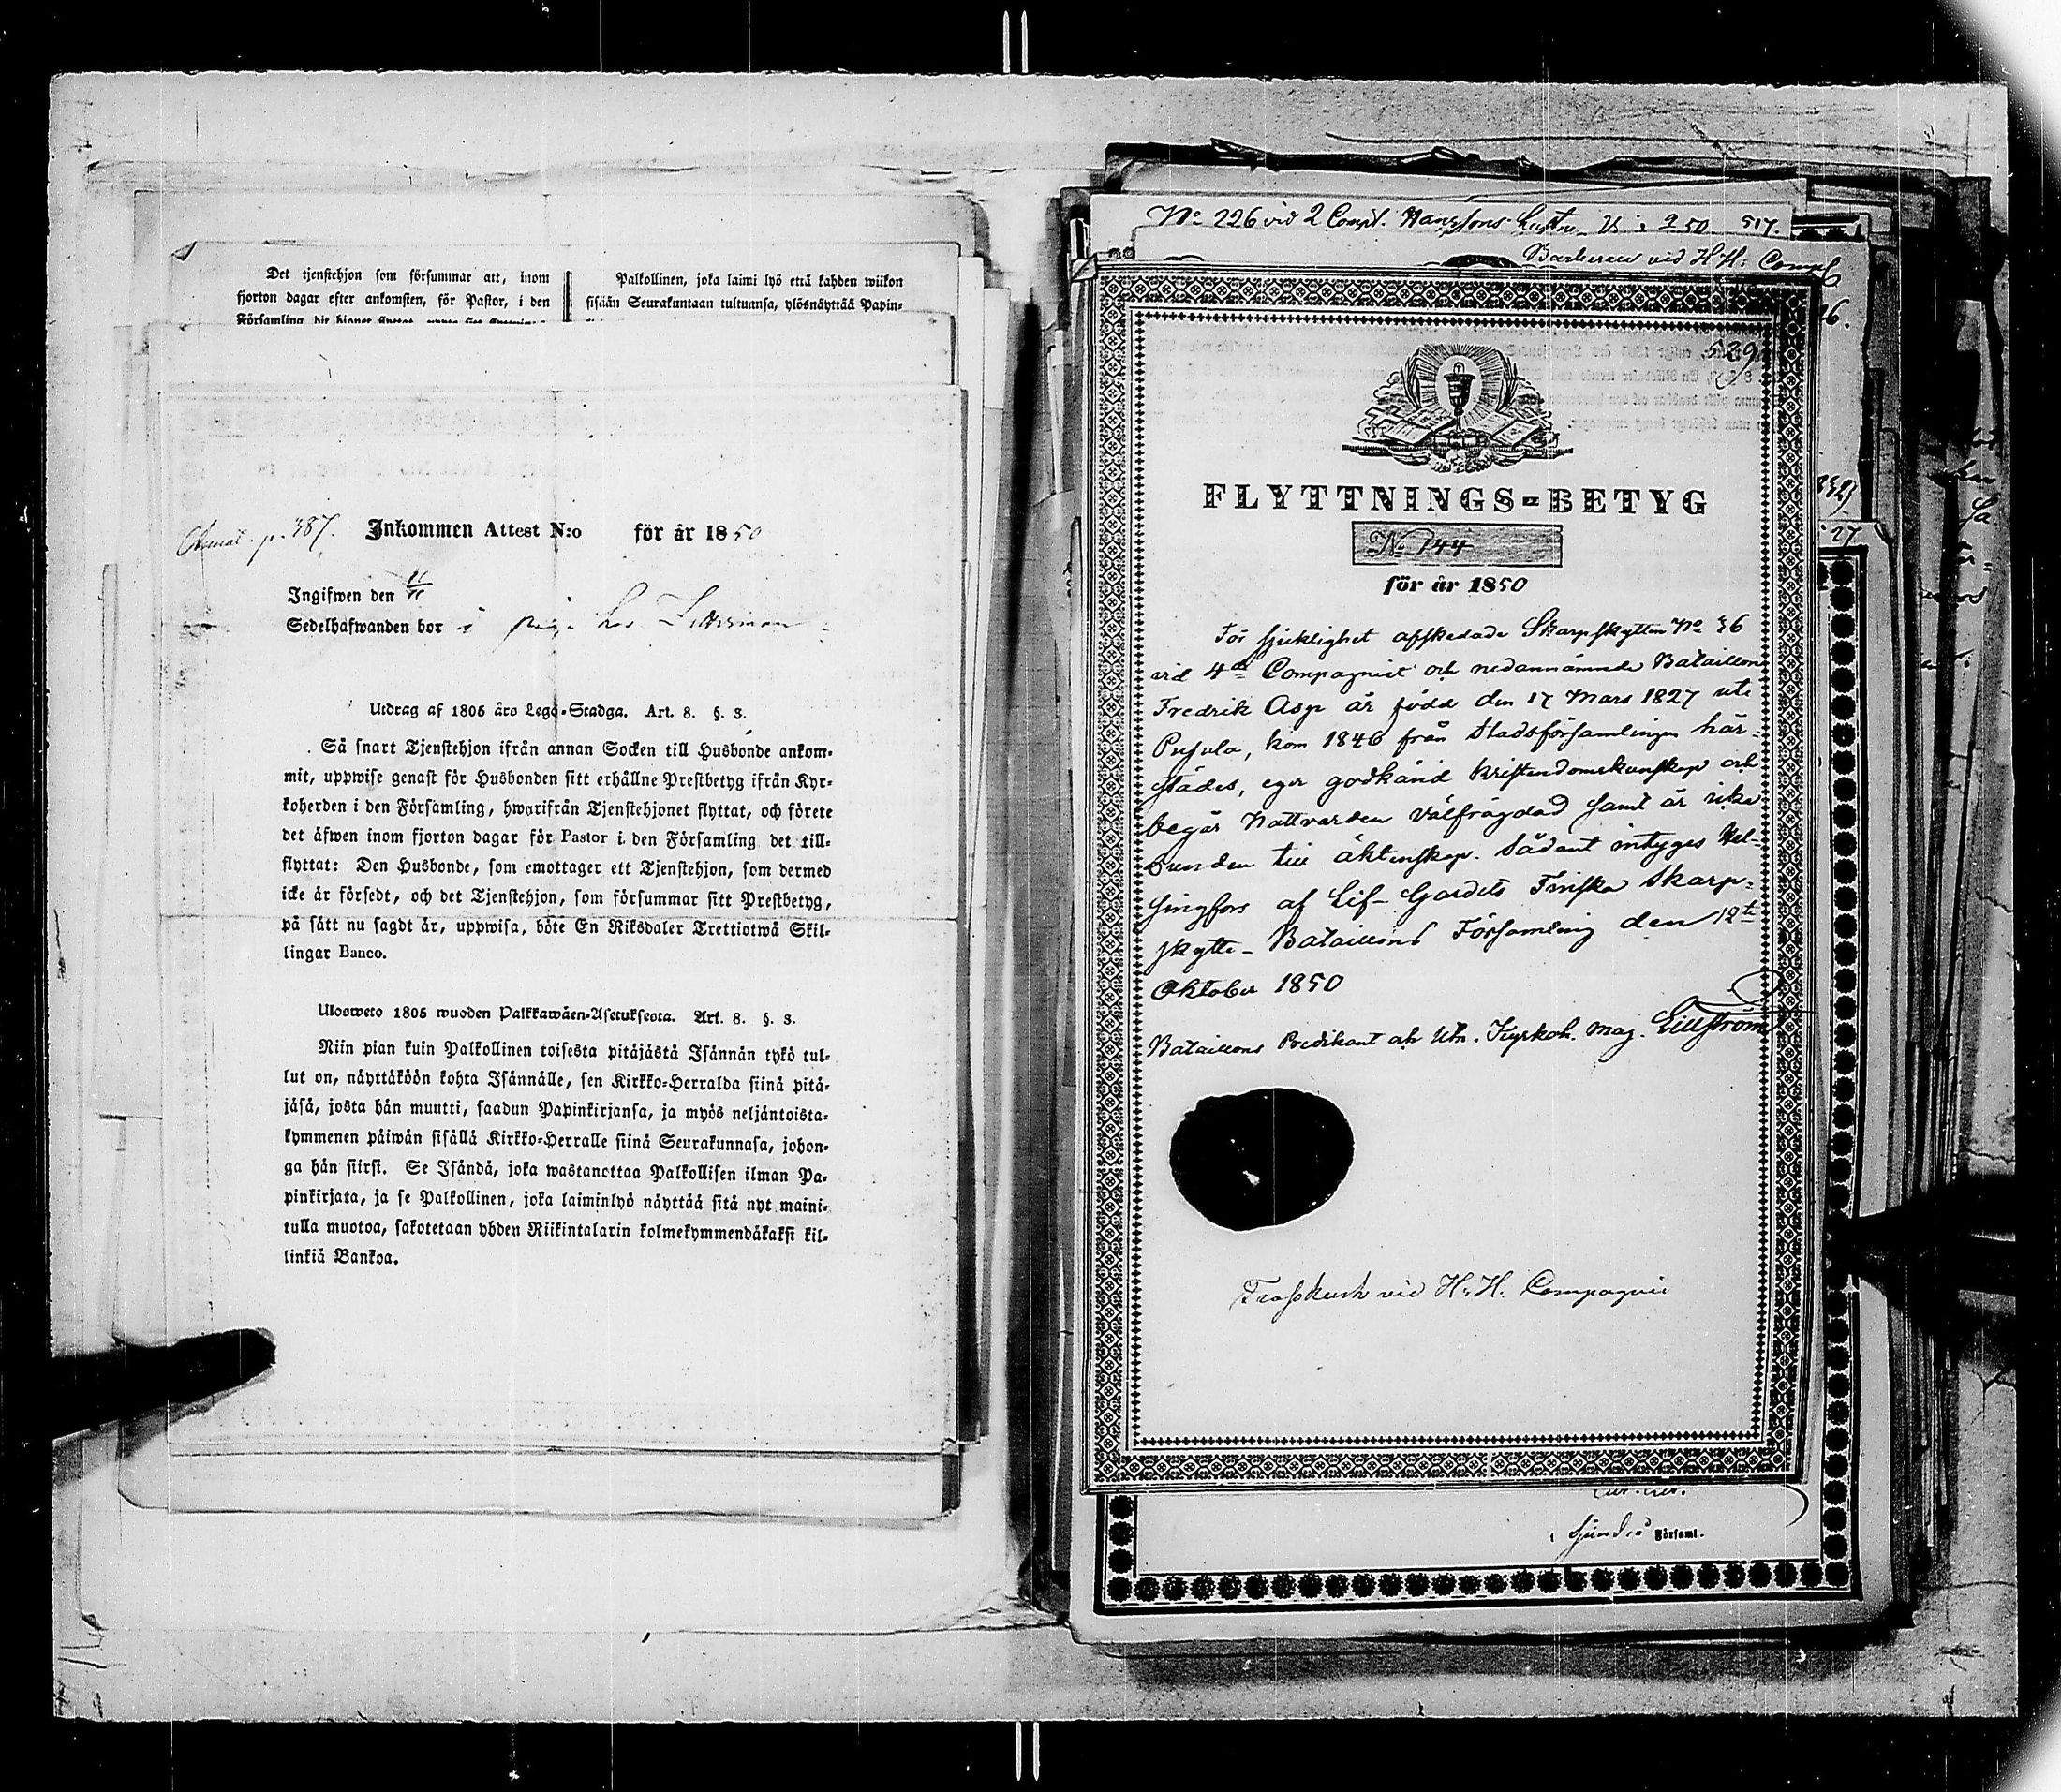 Det tjenstehjon som försummar att, inom
fjorton dagar efter ankomsten, för Pastor, i den
Församling dit
Palkollinen, joka laimi lyö että kahden wiikon
sisään Seurakuntaan tultuansa, ylösnäyttää Papin-
p. 387. Inkommen Attest N:o för år 1850
Ingifwen den
Sedelhafwanden bor i hos
Utdrag af 1805 års Lego-Stadga. Art. 8. §. 3.
Så snart Tjenstehjon ifrån annan Socken till Husbonde ankom-
mit, uppwise genast för Husbonden sitt erhållne Prestbetyg ifrån Kyr-
koherden i den Församling, hwarifrån Tjenstehjonet flyttat, och förete
det äfwen inom fjorton dagar för Pastor i den Församling det till-
flyttat: Den Husbonde, som emottager ett Tjenstehjon, som dermed
icke är försedt, och det Tjenstehjon, som försummar sitt Prestbetyg,
på sätt nu sagdt är, uppwisa, böte En Riksdaler Trettiotwå Skil-
lingar Banco.
Ulosweto 1805 wuoden Palkkawäen-Asetuksesta. Art. 8. §. 3.
Niin pian kuin Palkollinen toisesta pitäjästä Isännän tykö tul-
lut on, näyttäköön kohta Isännälle, sen Kirkko-Herralda siinä pitä-
jäsä, josta hän muutti, saadun Papinkirjansa, ja myös neljäntoista-
kymmenen päiwän sisällä Kirkko-Herralle siinä Seurakunnasa, johon-
ga hän siirsi. Se Isändä, joka wastanottaa Palkollisen ilman Pa-
pinkirjata, ja se Palkollinen, joka laiminlyö näyttää sitä nyt maini-
tulla muotoa, sakotetaan yhden Riikintalarin kolmekymmendäkaksi kil-
linkiä Bankoa.
No 226 vid 2 Comp. 50 517.
Barberaren vid H.H. Comp
539
FLYTTNINGS-BETYG
No 144
för år 1850
För sjuklighet afskedade Skarpskytten No 36
vid 4de Compagniet och nedannämnde Bataillon
Fredrik Asp är född den 17 Mars 1827 uti
Pusula, kom 1846 från Stadsförsamlingen här-
städes, eger godkänd kristendomskunskap och
begår Nattvarden välfrägdad samt är icke
bunden till äktenskap. Sådant intyges Hel-
singfors af Lif-Gardets Finska Skarp-
skytte-Bataillons Församling den 12te
Oktober 1850
Bataillons Predikant och Utn. Kyrkoh. Mag. Lillström
Trosskusk vid H. H. Compagnie
Församl.